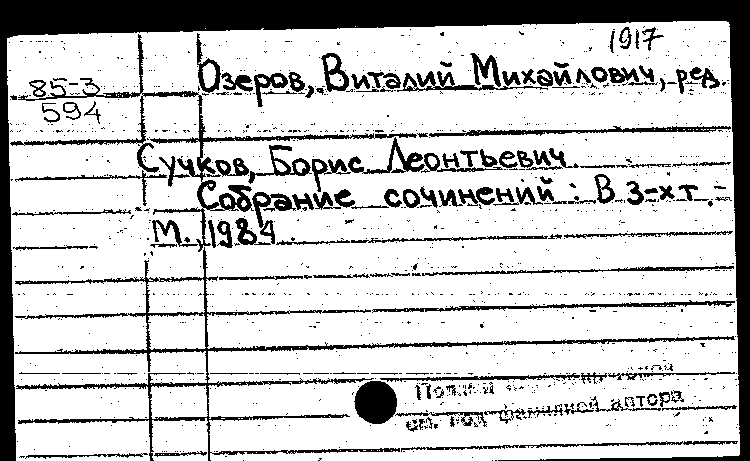 1917
Озеров, Виталий Михайлович, ред.
85-3
594
Сучков, Борис Леонтьевич.
Собрание сочинений : В 3-х т. -
М., 1984.
см. под фамилией автора